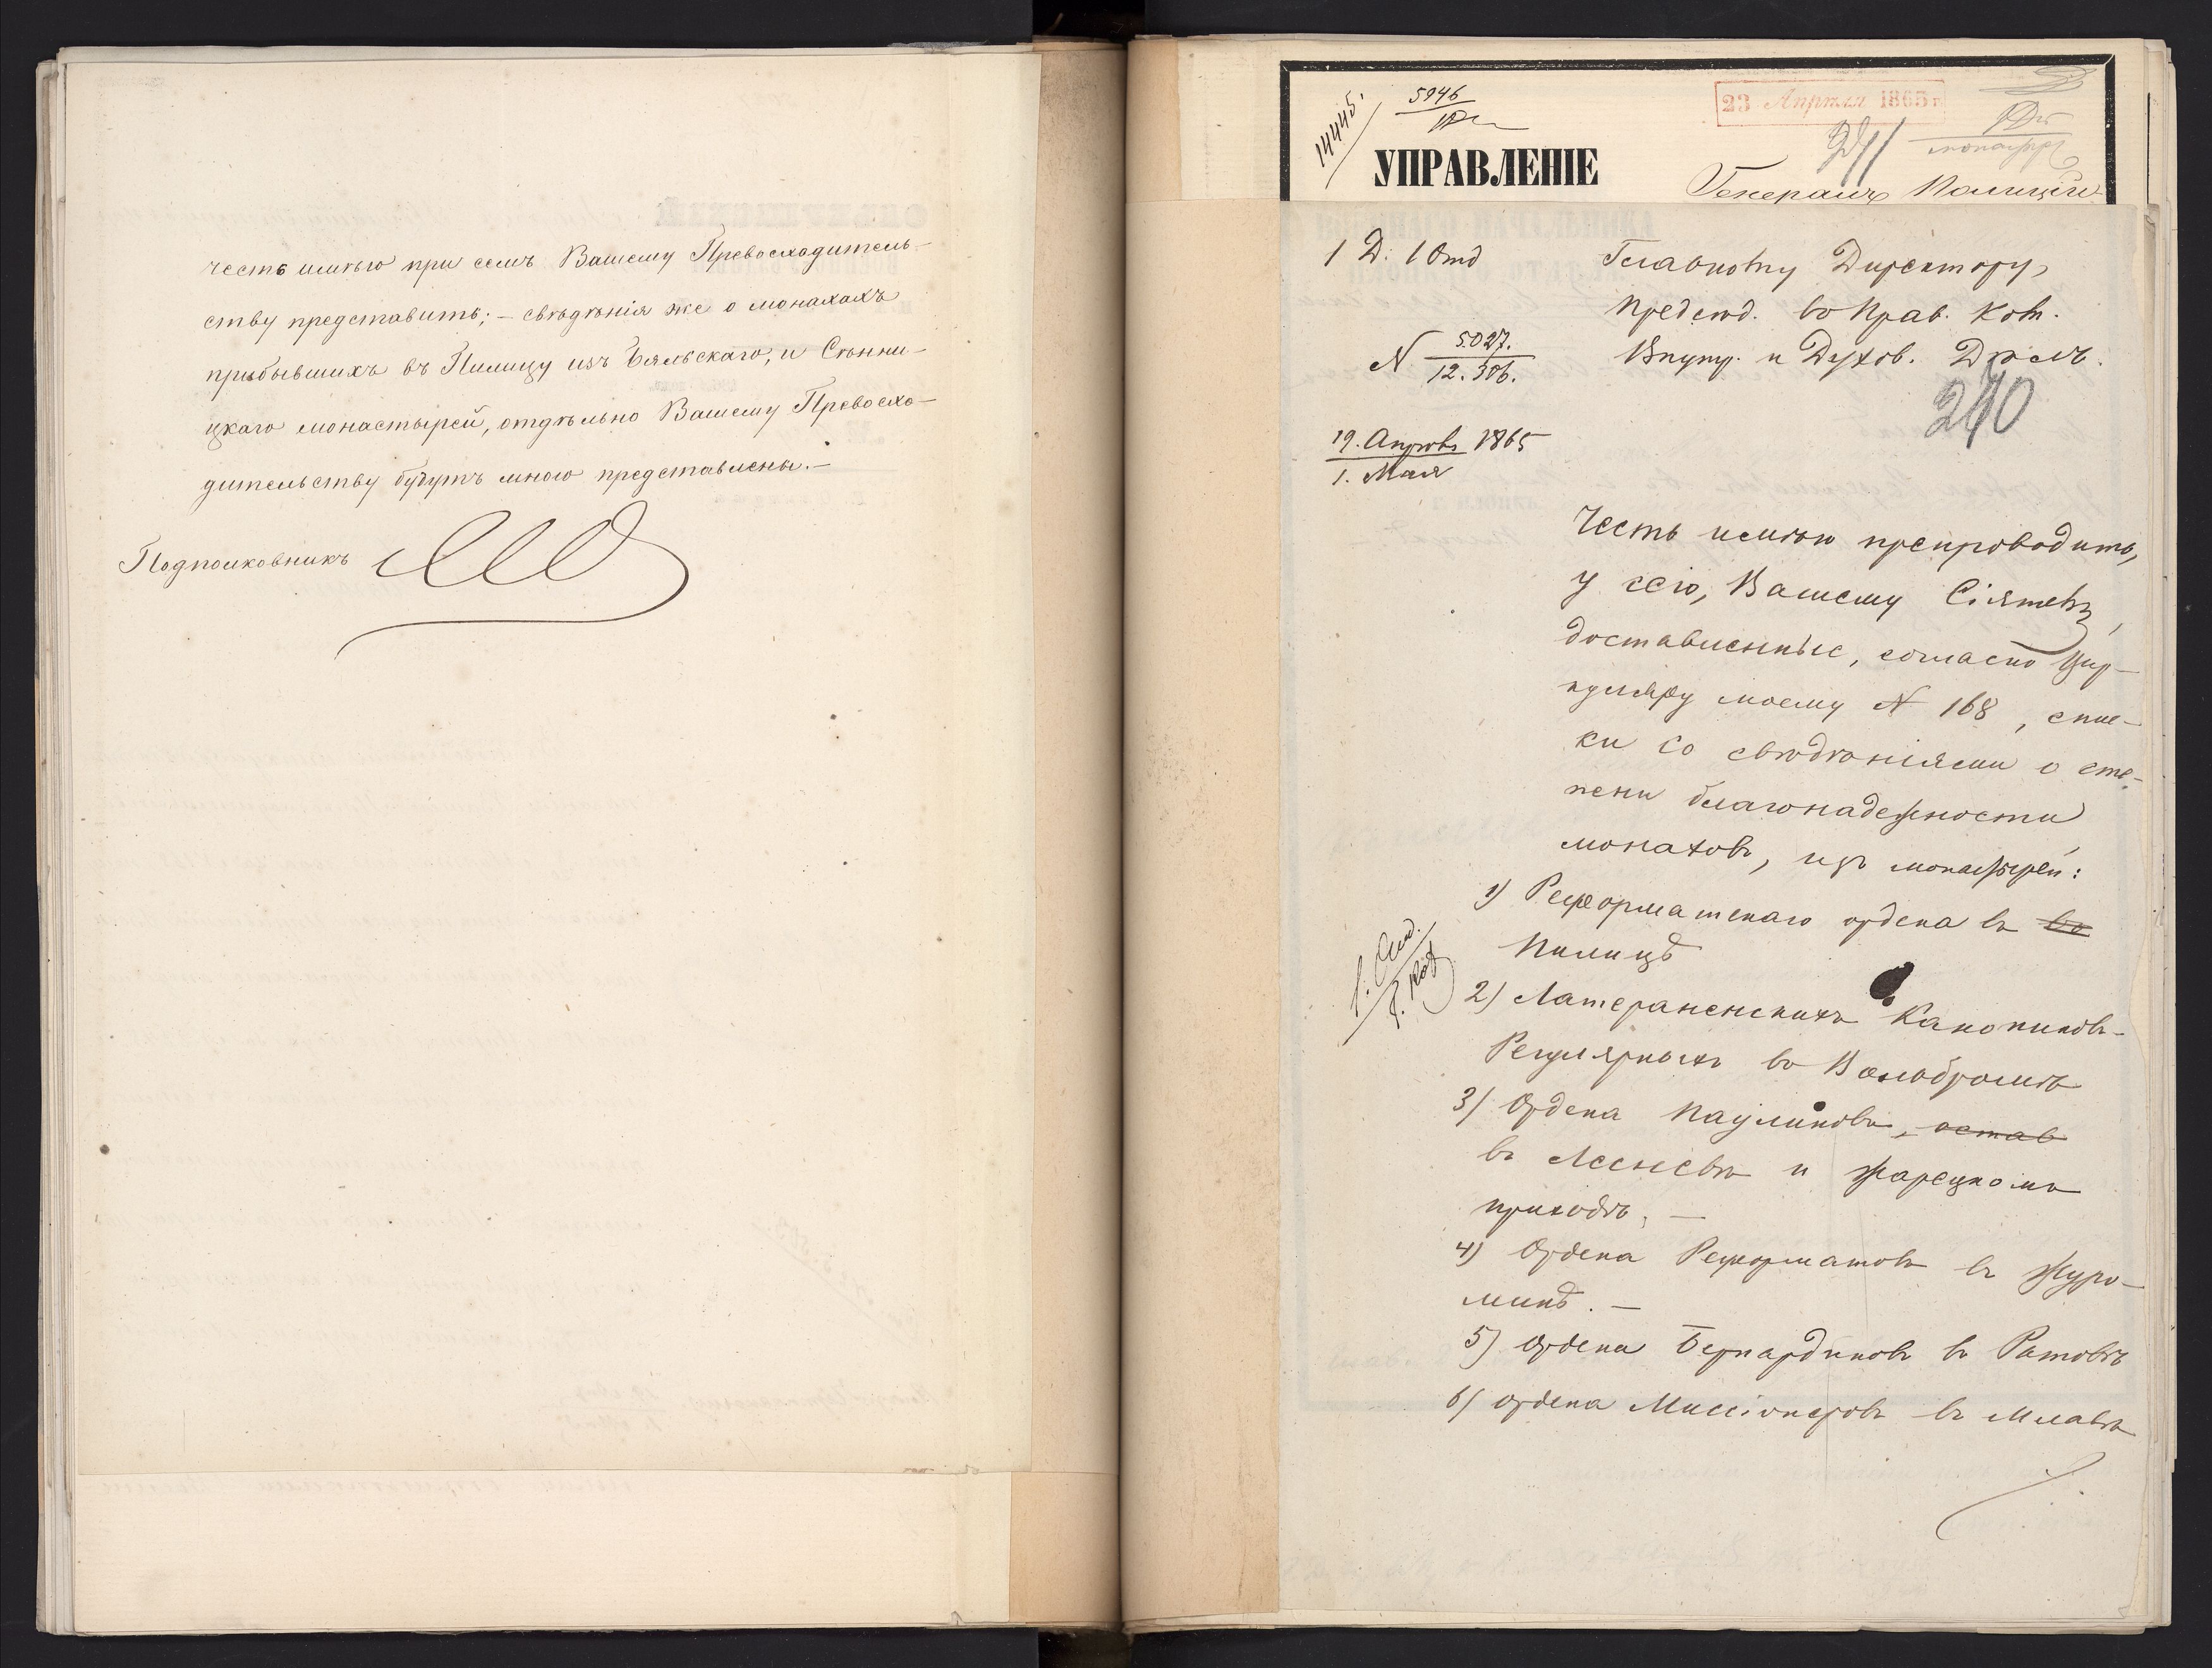 честь имѣю при семъ Вашему Превосходитель-
ству представить; – свѣдѣнія же о монахахъ
прибывшихъ въ Пилицу изъ Бяльскаго, и Сѣнни-
цкаго монастырей, отдѣльно Вашему Превосхо-
дительству будутъ мною представлены. –
Подполковникъ
14445.
5946
23 Апрѣля 1865 г
241
УПРАВЛЕНІЕ
Генералъ Полиціи
1 Д. 1 Отд
Главному Директору,
Предсѣд. въ Прав. Ком.
N 5027.
12.306.
Внутр. и Духов. Дѣлъ.
240
19. Апрѣля 1865
1. Мая
Честь имѣю препроводить,
у сего, Вашему Сіятельству,
доставленные, согласно Цир-
куляру моему N 168, спис-
ки со свѣдѣніями о сте-
пени благонадежности
монаховъ, изъ монастырей:
1) Реформатскаго ордена въ во
Пилицѣ
2) Латераненскихъ Канониковъ-
Регулярныхъ въ Вольбромѣ
3) Ордена Паулиновъ, остав
въ Лесневѣ и Жарецкомъ
приходѣ. –
4) Ордена Реформатовъ въ Журо-
минѣ. –
5) Ордена Бернардиновъ въ Ратовѣ
6) Ордена Миссіонеровъ въ Млавѣ